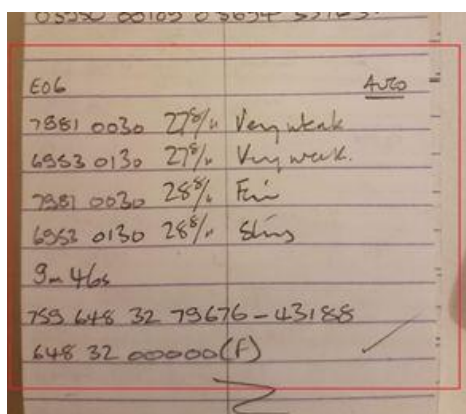 E06 Auto
7981 0030 27 8/11 Very weak
6953 0130 27 8/11 Very weak.
7981 0030 28 8/11 Fair
6953 0130 28 8/11 Strong
9m 46s
759 648 32 79676 - 43188
648 32 00000 (F)